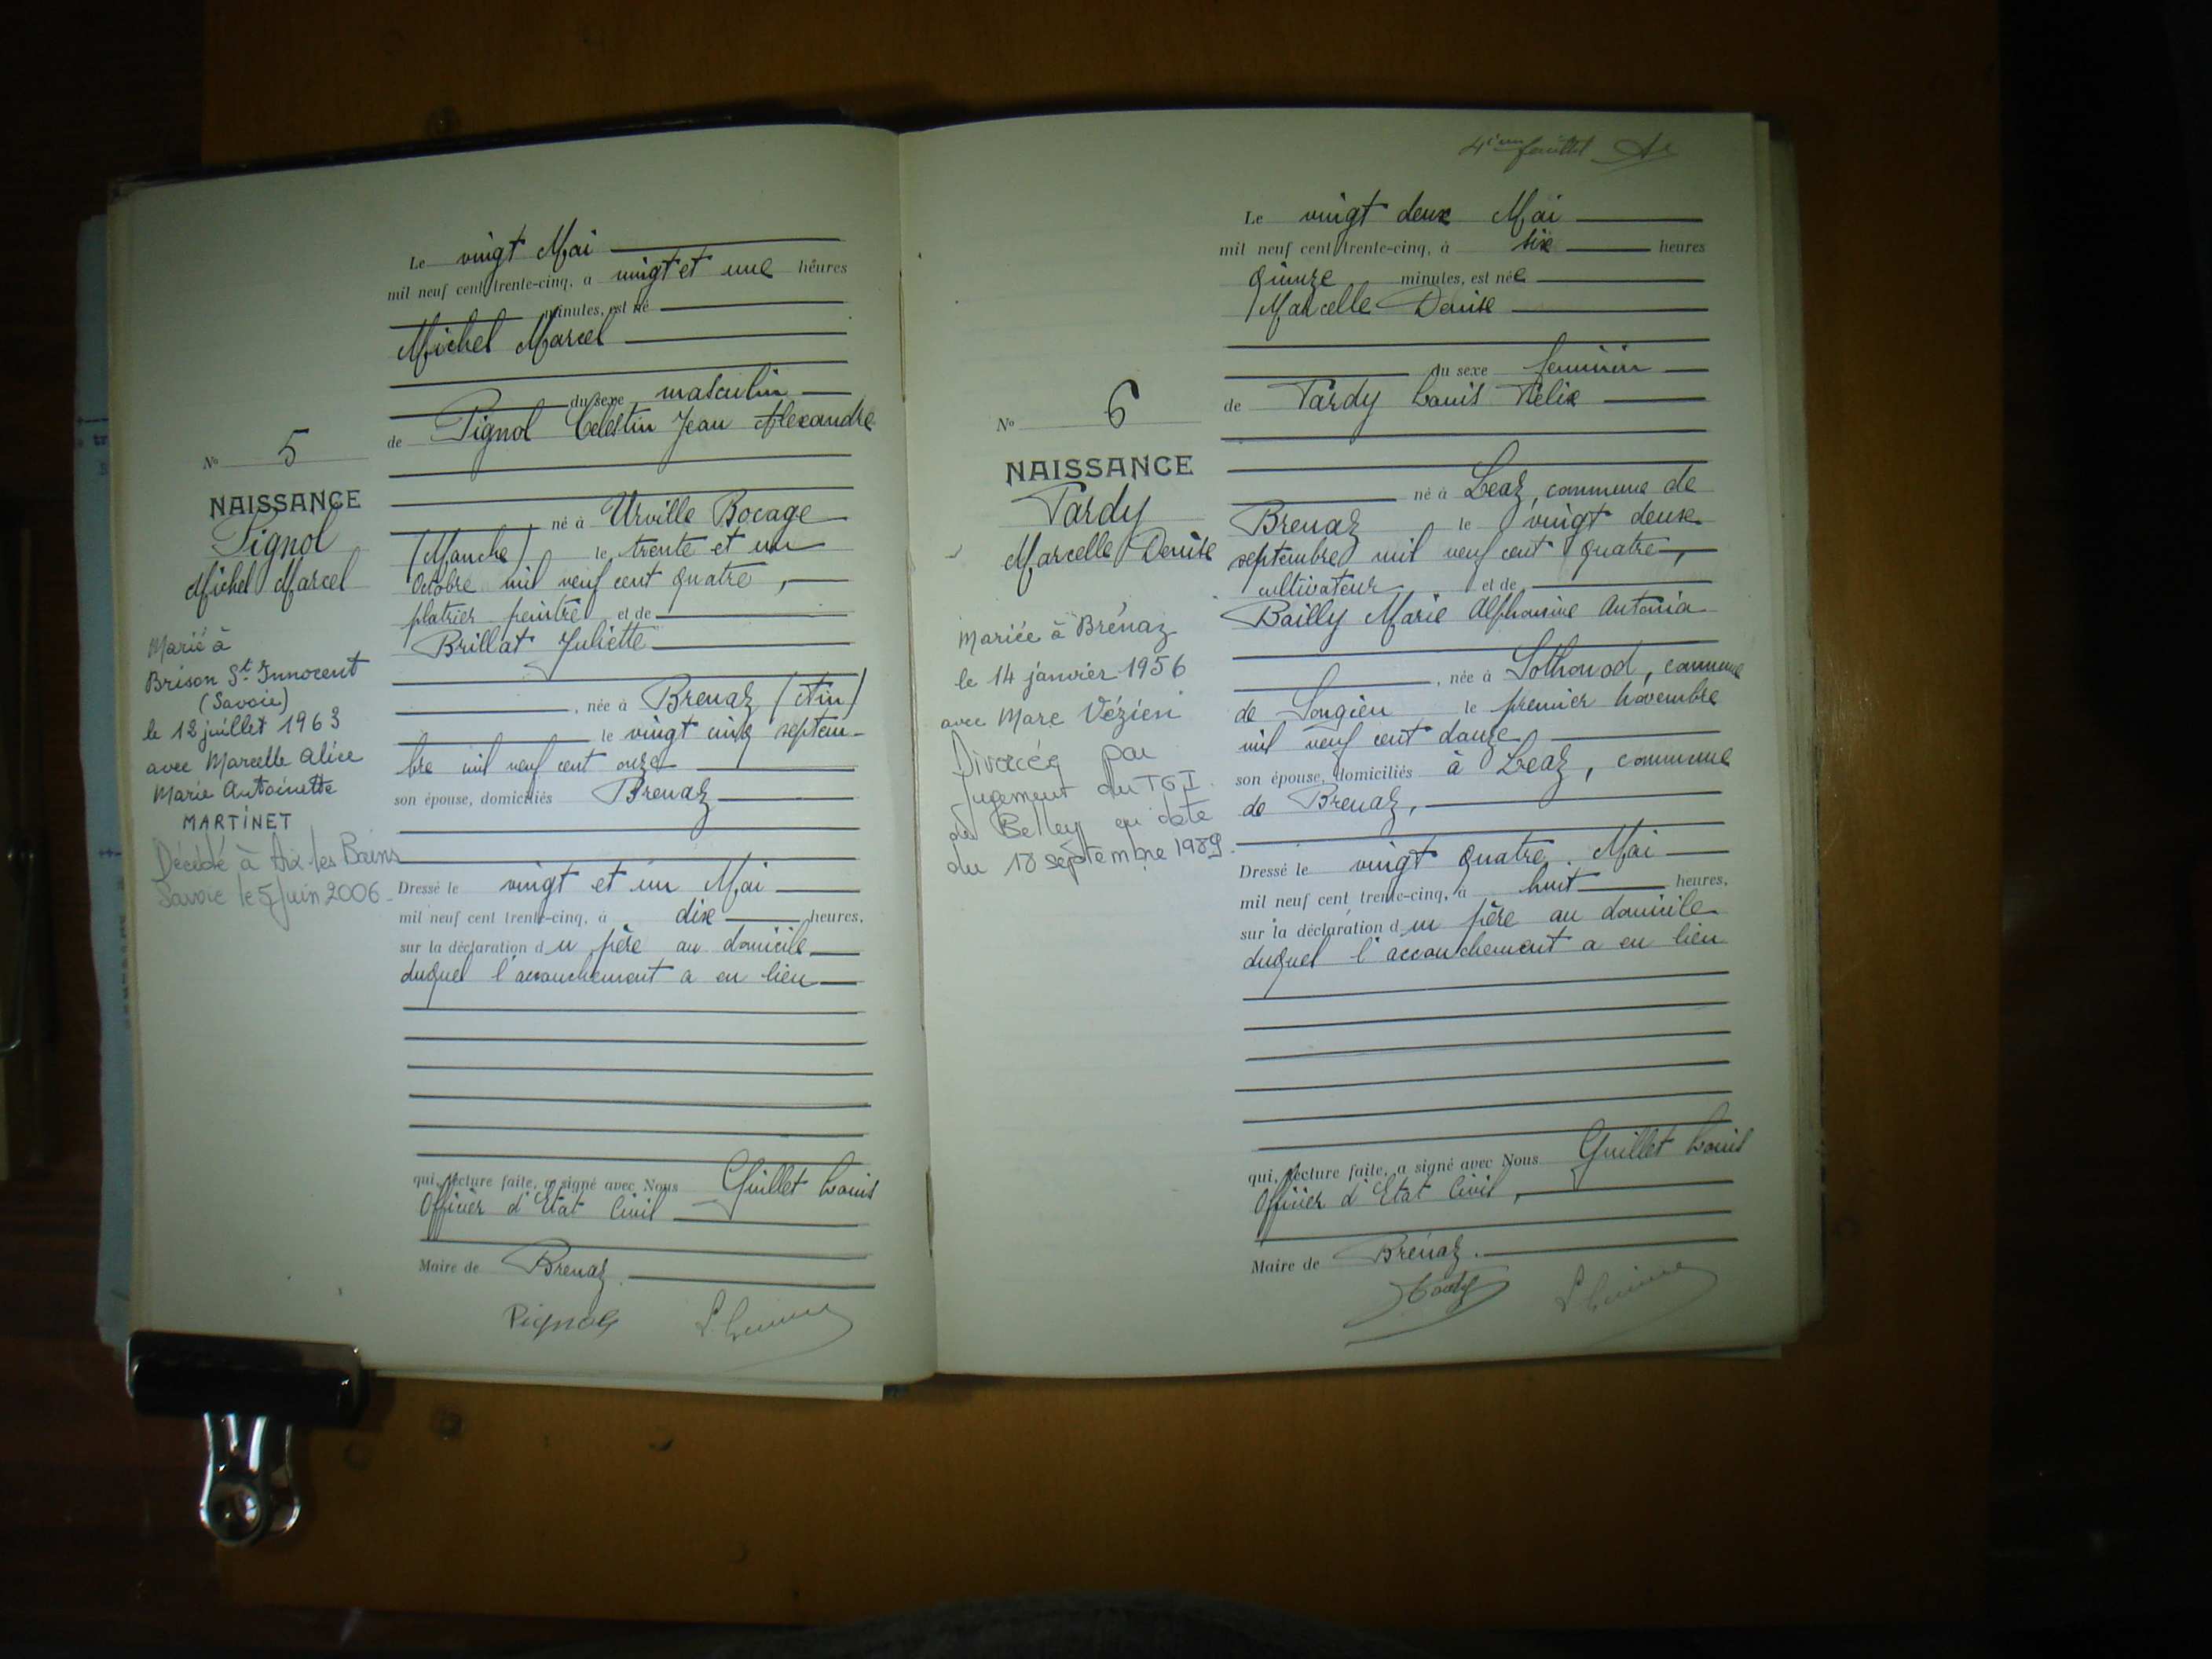 Le vingt Mai
mil neuf cent trente-cinq, à vingt et une heures
minutes, est né
Michel Marcel
du sexe masculin
de Pignol Célestin Jean Alexandre
né à Urville Bocage
(Manche) le trente et un
octobre mil neuf cent quatre,
platrier peintre et de
Brillat Juliette
, née à Brenaz (Ain)
le vingt cinq septem-
bre mil neuf cent onze
son épouse, domiciliés Brenaz
Dressé le vingt et un Mai
mil neuf cent trente-cinq, à dix heures,
sur la déclaration du père au domicile
duquel l'accouchement a eu lieu
qui, lecture faite, a signé avec Nous Guillet Louis
Officier d'Etat Civil
Maire de Brenaz.
Pignol
No 5
NAISSANCE
Pignol
Michel Marcel
Marié à
Brison St Innocent
(Savoie)
le 12 juillet 1963
avec Marcelle Alice
Marie Antoinette
MARTINET
Décédé à Aix les Bains
Savoie le 5 Juin 2006
4ième feuillet
Le vingt deux Mai
mil neuf cent trente-cinq, à six heures
quinze minutes, est née
Marcelle Denise
du sexe feminin
de Tardy Louis Félix
né à Leaz, commune de
Brenaz le vingt deux
septembre mil neuf cent quatre,
cultivateur et de
Bailly Marie Alphonsine Antonia
, née à Sothonod, commune
de Songieu le premier novembre
mil neuf cent douze
son épouse, domiciliés à Leaz, commune
de Brenaz,
Dressé le vingt quatre Mai
mil neuf cent trente-cinq, à huit heures,
sur la déclaration du père au domicile
duquel l'accouchement a eu lieu
qui, lecture faite, a signé avec Nous Guillet Louis
Officier d'Etat Civil,
Maire de Brénaz.
Tardy
No 6
NAISSANCE
Tardy
Marcelle Denise
Mariée à Brénaz
le 14 janvier 1956
avec Marc Vézien
Divorcée par
jugement du TGI
de Belley en date
du 18 septembre 1989.